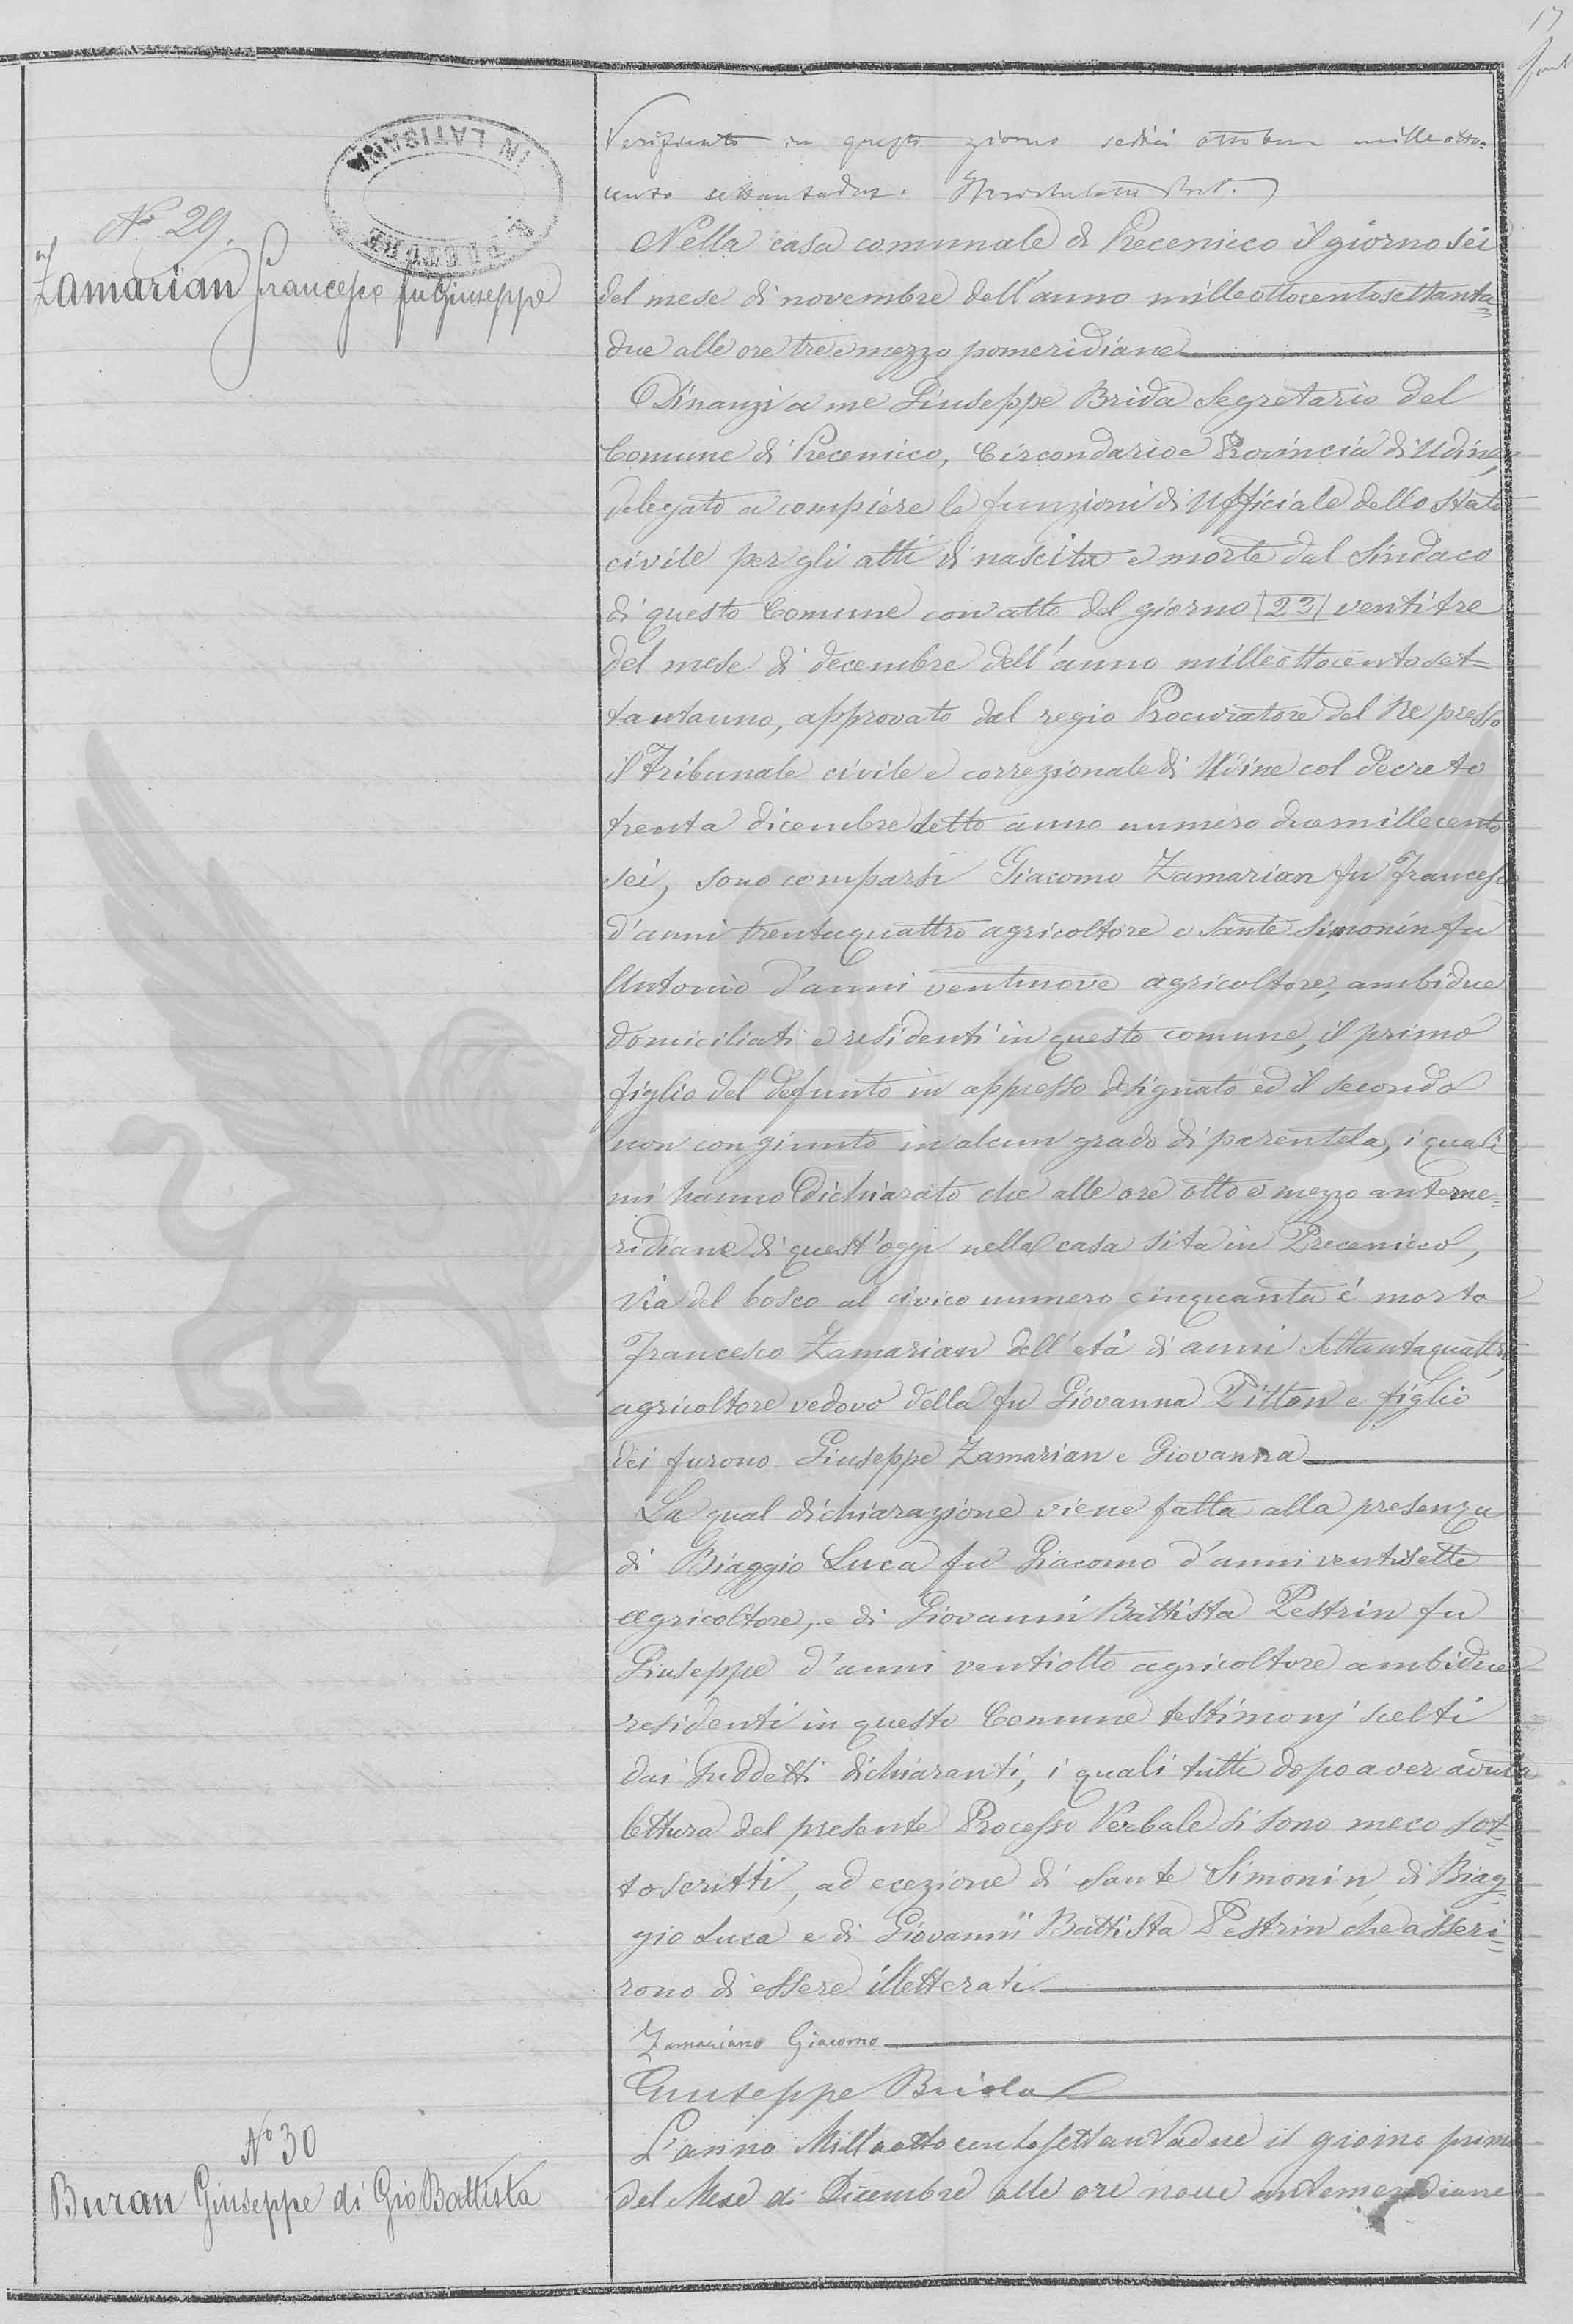 17
IN LATISANA
PRETORE
Nº 29.
Zamarian Francesco fu Giuseppe
Verificato in questo giorno sedici ottobre mille otto=
cento settantadue.
Nella casa comunale di Precenicco il giorno sei
del mese di novembre dell'anno milleottocentosettanta=
due alle ore tre e mezzo pomeridiane
Dinanzi a me Giuseppe Brida Segretario del
Comune di Precenicco, Circondario e Provincia di Udine,
delegato a compiere le funzioni di Ufficiale dello Stato
civile per gli atti di nascita e morte dal Sindaco
di questo Comune con atto del giorno |23| ventitre
del mese di decembre dell'anno milleottocentoset=
tantauno, approvato dal regio Procuratore del Re presso
il Tribunale civile e correzionale di Udine col decreto
trenta dicembre detto anno numero duemillecento
sei, sono comparsi Giacomo Zamarian fu Francesco
d'anni trentaquattro agricoltore e Sante Simonin fu
Antonio d'anni ventinove agricoltore, ambidue
domiciliati e residenti in questo comune, il primo
figlio del defunto in appresso designato ed il secondo
non congiunto in alcun grado di parentela, i quali
mi hanno dichiarato che alle ore otto e mezzo anteme=
ridiane di quest'oggi nella casa sita in Precenicco,
Via del bosco al civico numero cinquanta è morto
Francesco Zamarian dell'età di anni settantaquattro,
agricoltore vedovo della fu Giovanna Pitton e figlio
dei furono Giuseppe Zamarian e Giovanna
La qual dichiarazione viene fatta alla presenza
di Biaggio Luca fu Giacomo d'anni ventisette
agricoltore, e di Giovanni Battista Pestrin fu
Giuseppe d'anni ventiotto agricoltore ambidue
residenti in questo Comune testimonj scelti
dai suddetti dichiaranti, i quali tutti dopo aver avuta
lettura del presente Processo Verbale si sono meco sot=
toscritti, ad ecezione di Sante Simonin, di Biag=
gio Luca e di Giovanni Battista Pestrin che asseri=
rono di essere illetterati
Zamariano Giacomo
Giuseppe Brida
Nº 30
Buran Giuseppe di Gio Battista
L'anno Milleottocentosettantadue il giorno primo
del Mese di Dicembre alle ore nove antemeridiane